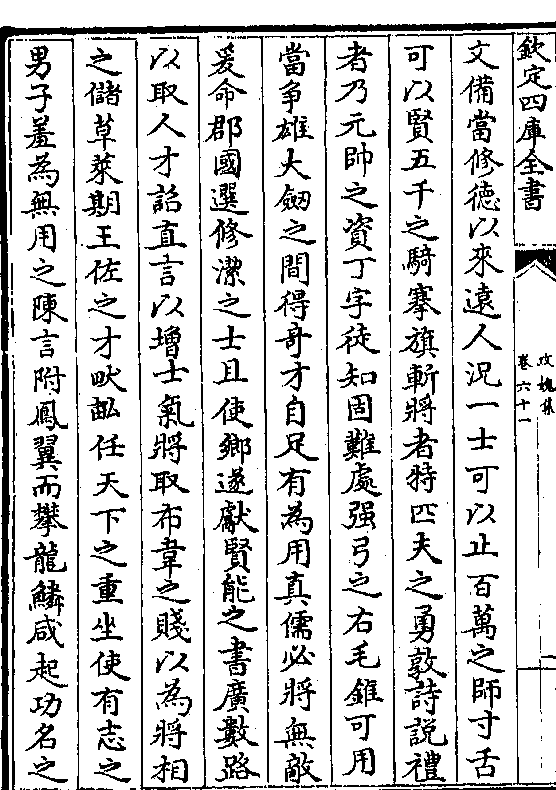 欽定四庫全書
攻媿集
卷六十一
文備當修德以來遠人況一士可以止百萬之師寸舌
可以賢五千之騎搴旗斬將者特匹夫之勇敦詩說禮
者乃元帥之資丁字徒知固難處强弓之右毛錐可用
當争雄大劒之間得奇才自足有為用真儒必將無敵
爰命郡國選修潔之士且使鄉遂獻賢能之書廣數路
以取人才詔直言以增士氣將取布韋之賤以為將相
之儲草萊期王佐之才畎畝任天下之重坐使有志之
男子羞為無用之陳言附鳳翼而攀龍鱗咸起功名之